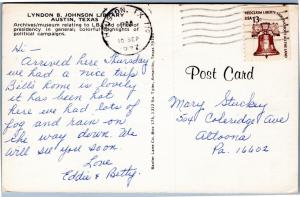 LYNDON B. JOHNSON LIBRARY
AUSTIN, TEXAS
Archives/museum relating to LBJ and office of
presidency in general, colorful highlights of
political campaigns.
Hi -
Arrived here Thursday
we had a nice trip
Bill's home is lovely
it has been hot
here we had lots of
fog and rain on
the way down. We
will see you soon.
Love
Eddie & Betty.
PM
10 SEP
1977
PROCLAIM LIBERTY
13c
Post Card
Mary Stuckey
504 Coleridge Ave
Altoona
Pa. 16602